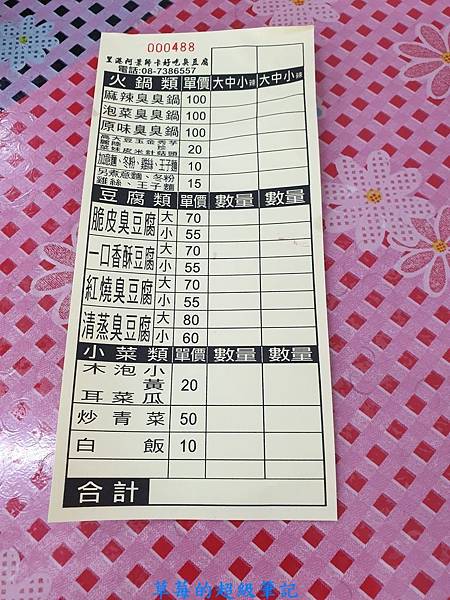 000488
里港阿景師卡好吃臭豆腐
電話:08-7386557
火鍋類 單價 大中小辣 大中小辣
麻辣臭臭鍋 100
泡菜臭臭鍋 100
原味臭臭鍋 100
高大豆玉金秀芋
麗陸 珍
菜妹皮米針菇頭 20
加意麵、冬粉、雞絲、王子麵 10
另煮意麵、冬粉
雞絲、王子麵 15
豆腐類 單價 數量 數量
脆皮臭豆腐 大 70
小 55
一口香酥豆腐 大 70
小 55
紅燒臭豆腐 大 70
小 55
清蒸臭豆腐 大 80
小 60
小菜類 單價 數量 數量
木泡小
黃
耳菜瓜 20
炒青菜 50
白飯 10
合計
草莓的超級筆記